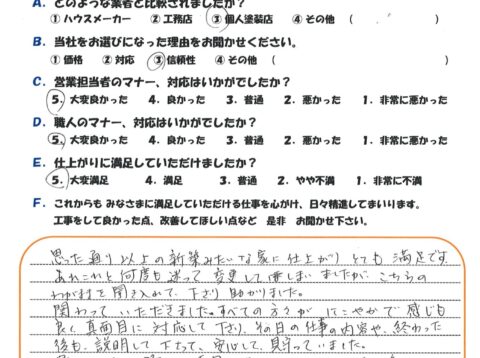 A. どのような業者と比較されましたか?
① ハウスメーカー ② 工務店 ③ 個人塗装店 ④ その他 ( )
B. 当社をお選びになった理由をお聞かせください。
① 価格 ② 対応 ③ 信頼性 ④ その他 (
C. 営業担当者のマナー、対応はいかがでしたか?
5. 大変良かった 4. 良かった 3. 普通 2. 悪かった 1. 非常に悪かった
D. 職人のマナー、対応はいかがでしたか?
5. 大変良かった 4. 良かった 3. 普通 2. 悪かった 1. 非常に悪かった
E. 仕上がりに満足していただけましたか?
5. 大変満足 4. 満足 3. 普通 2. やや不満 1. 非常に不満
F. これからも みなさまに満足していただける仕事を心がけ、日々精進してまいります。
工事をして良かった点、改善してほしい点など 是非 お聞かせ下さい。
思った通り以上の新築みたいな家に仕上がり とても 満足です
あれこれと何度も迷って 変更して 仕舞いましたが、こちらの
わがままを聞き入れて、下さり 助かりました。
関わって いただきました、すべての方々が にこやかで 感じも
良く、真面目に 対応して下さり、その日の仕事の内容や、終わった
後も、説明して下さって、安心して、見守っていました。